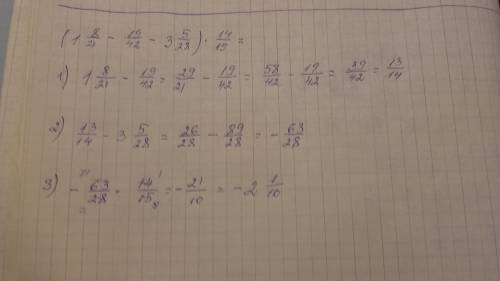 (1 8/21 - 19/42 - 3 5/28) · 14/15 =
1) 1 8/21 - 19/42 = 29/21 - 19/42 = 58/42 - 19/42 = 39/42 = 13/14
2) 13/14 - 3 5/28 = 26/28 - 89/28 = - 63/28
3) - 63/28 · 14/15 = - 21/10 = - 2 1/10